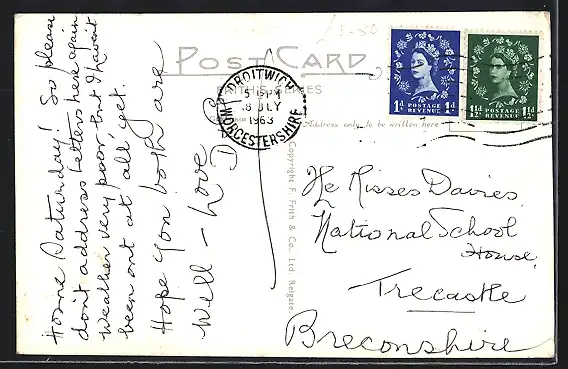 1-50
POST CARD
FRITH'S SERIES
Address only to be written here
DROITWICH
5 15 PM
8 JLY
1963
WORCESTERSHIRE
1D POSTAGE REVENUE 1D
1½D POSTAGE REVENUE 1½D
Home Saturday! So please
don't address letters here again
Weather very poor but I haven't
been out at all, yet.
Hope you both are
Well – Love
D
Copyright F. Frith & Co., Ltd. Reigate
The Misses Davies,
National School
House,
Trecastle
Breconshire